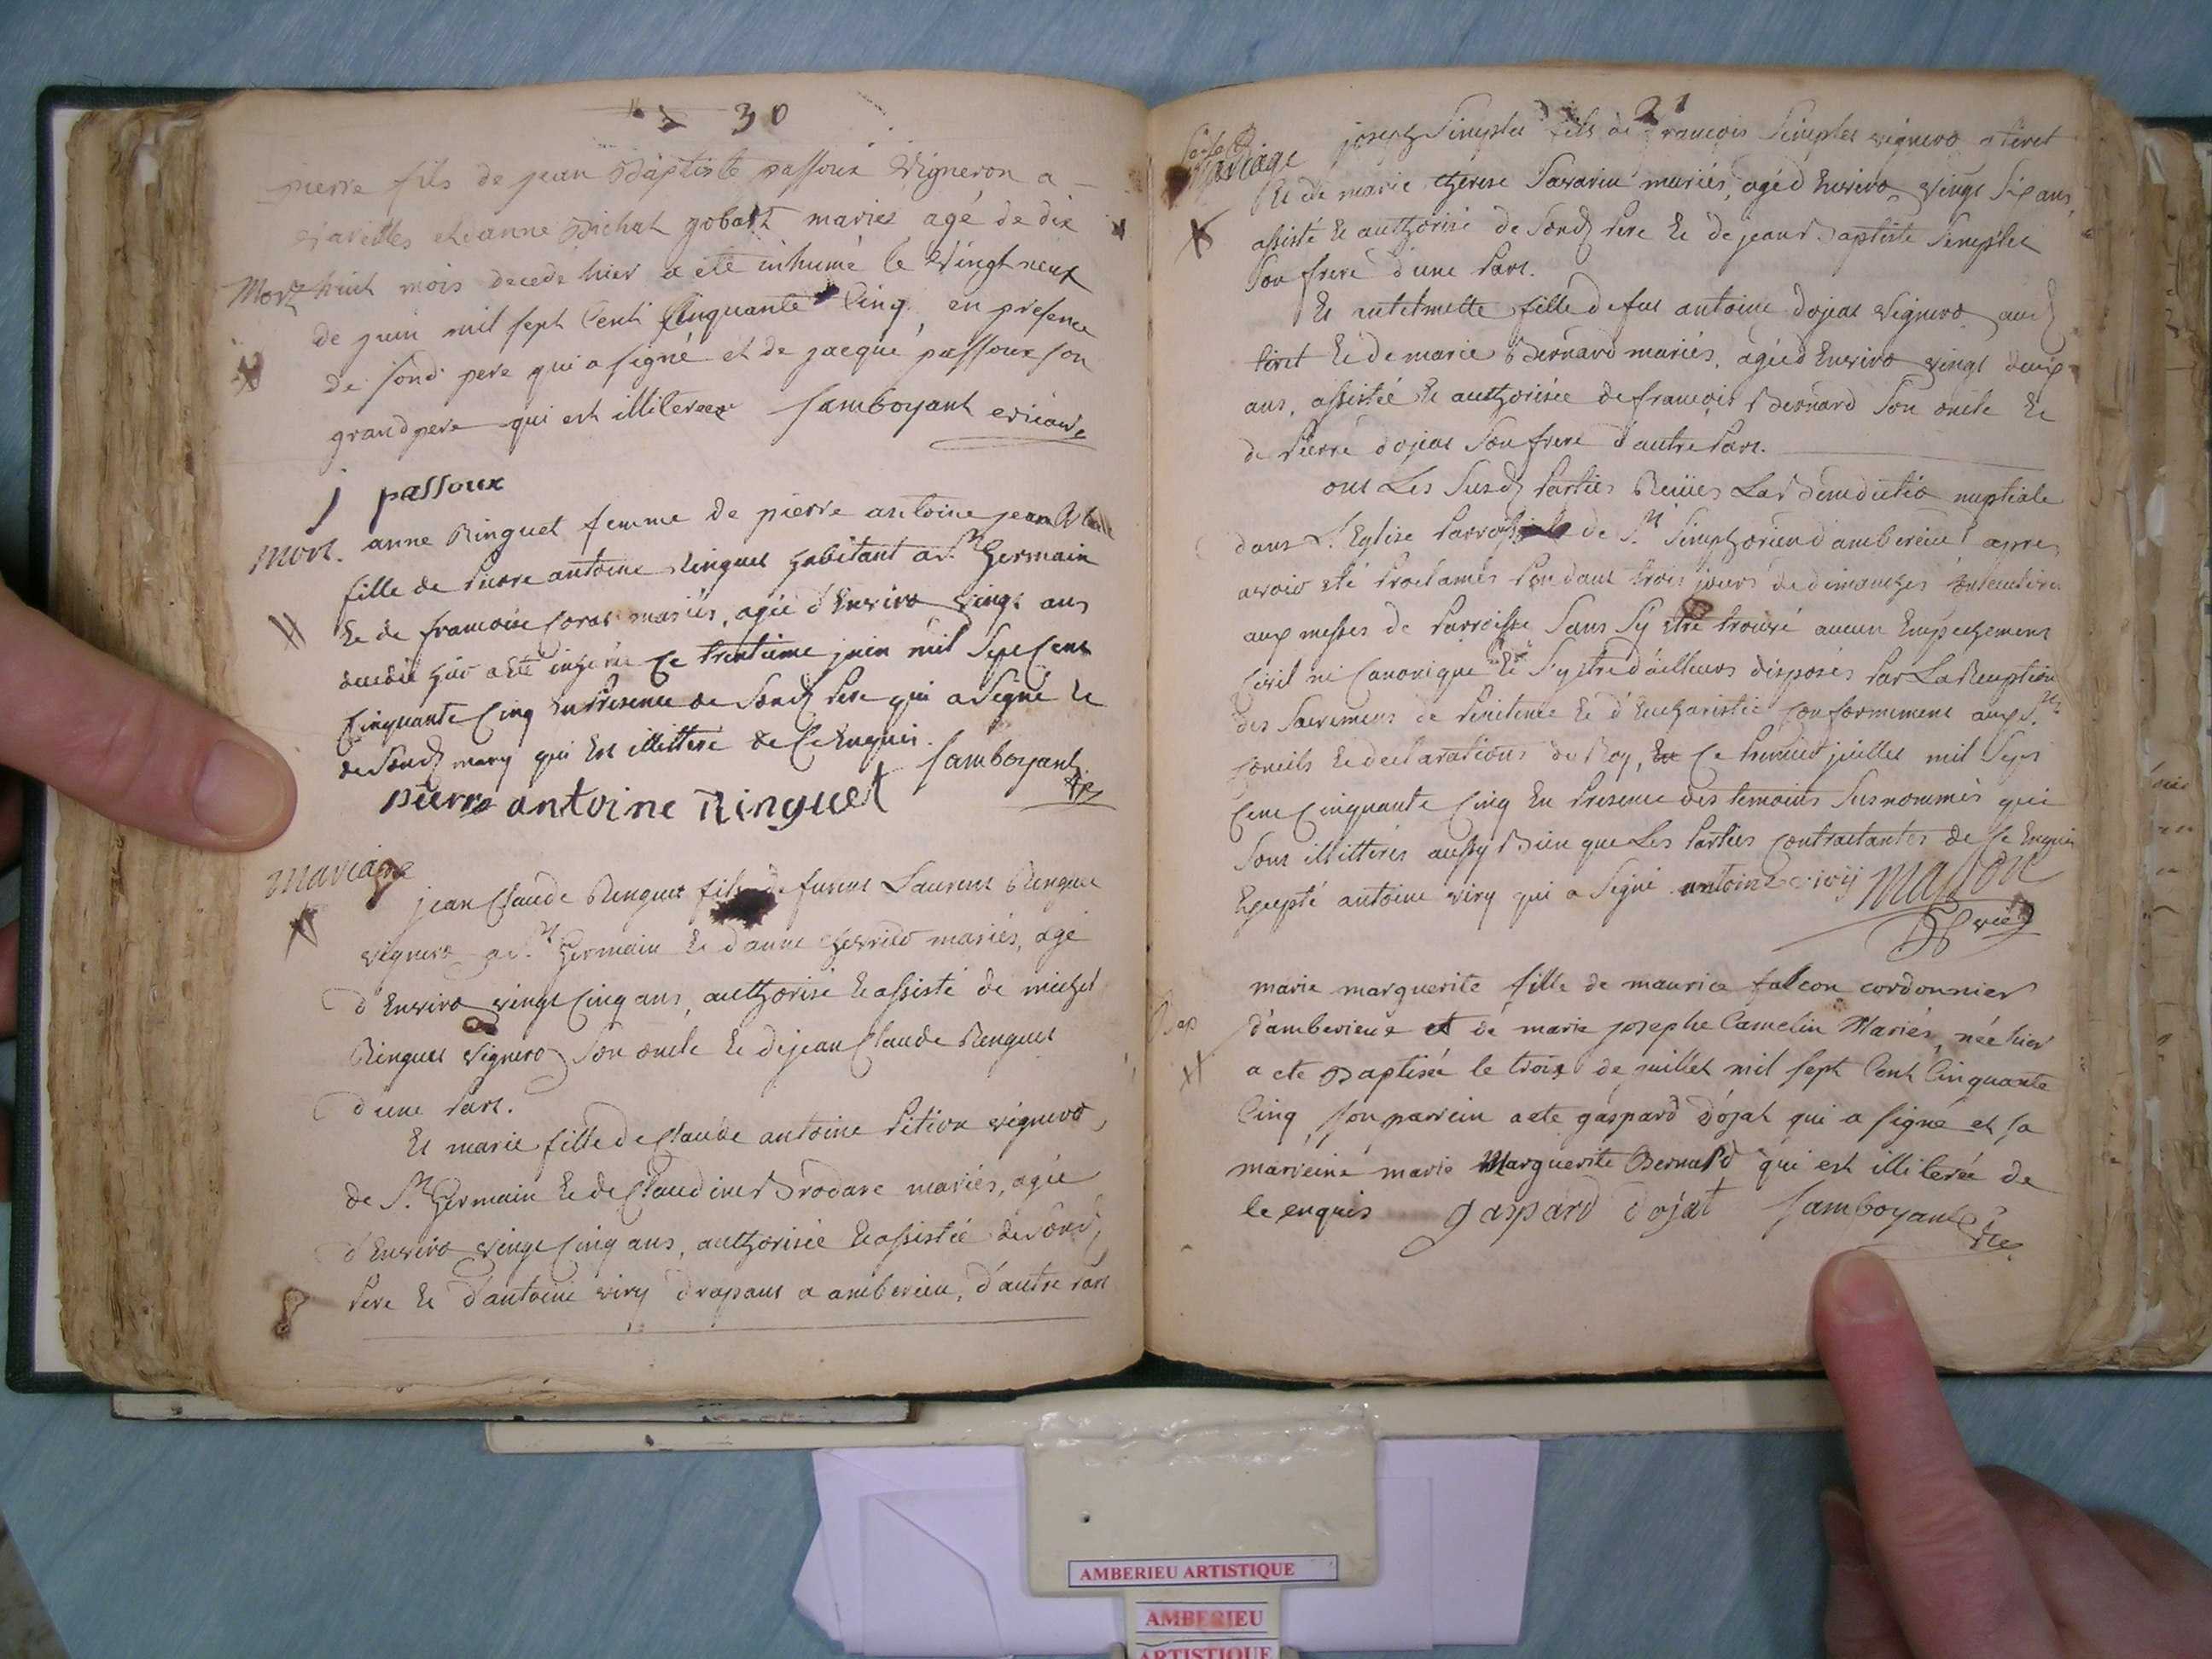 30
pierre fils de jean Baptiste passoux Vigneron a
Vareilles et danne Bichat gobart mariez agé de dix
Mort huit mois decede hier a été inhumé le Vingt neuf
de juin mil sept Cent Cinquante Cinq, en presence
de sond pere qui a signé et de jacque passoux son
grand pere qui est illiteree Jamboyant vicaire
j passoux
Mort. anne Ringuet femme de pierre antoine jean
fille de Pierre antoine Ringuet habitant a St Germain
Et de francoise mariés, agée d'Enviro vingt ans
decedée hier a été inhumée Ce trentieme juin mil Sept Cent
Cinquante Cinq En Presence de Sond Pere qui a Signé Et
de Sond mary qui Est illitteré de Ce Enquis. Jamboyant
pierre antoine Ringuet
Mariage
jean Claude Ringuet fils de Laurent Ringuet
vignero a St Germain Et danne mariés, agé
d'Enviro vingt Cinq ans, authorisé Et assisté de michel
Ringuet vignero Son oncle Et de jean Claude Ringuet
d'une Part.
Et marie fille de Claude antoine Pition vignero
de St Germain Et de Claudine Brodare mariés, agée
d'Enviro vingt Cinq ans, authorisée Et assistée de Sond
Pere Et d'antoine viry drapant a amberieu, d'autre Part
21
Mariage joseph Simplet fils de françois Simplet vignero a tiret
Et de marie therese Savarin mariés, agé d'Enviro vingt Six ans,
assisté Et authorisé de Sond Pere Et de jean Baptiste Simplet
Son frere d'une Part.
Et fille de feu antoine dojat vignero aud
tiret Et de marie Bernard mariés, agée d'Enviro vingt deux
ans, assistée Et authorisée de françois Bernard Son oncle Et
de Pierre dojat Son frere d'autre Part.
ont Les Susd Parties Reçües La Benedictio nuptiale
dans L'Eglise Parroissiale de St Simphorien d'amberieu apres
avoir été Proclamés Pendant trois jours de dimanches
aux messes de Parroisse Sans Sy être trouvé aucun Empechement
Civil ni Canonique Et S'y etre d'ailleurs disposés Par La Reception
des Sacremens de Penitence Et d'Eucharistie Conformement aux Sts
Concils Et declarations du Roy, Ce Premier juillet mil Sept
Cent Cinquante Cinq En Presence des temoins Susnommés qui
Sont illitterés aussy Bien que Les Parties Contractantes de Ce Enquis
Excepté antoine viry qui a Signé. antoine viry Masson
Bap marie marguerite fille de maurice falcon cordonnier
d'amberieux et de marie josephe Camelin Mariés, née hier
a ete Baptisée le trois de juillet mil sept Cent Cinquante
Cinq, son parrein a ete gaspard dojat qui a signé et sa
marreine marie Marguerite Bernard qui est illiterée de
ce enquis gaspard dojat Jamboyant
AMBERIEU ARTISTIQUE
AMBERIEU
ARTISTIQUE